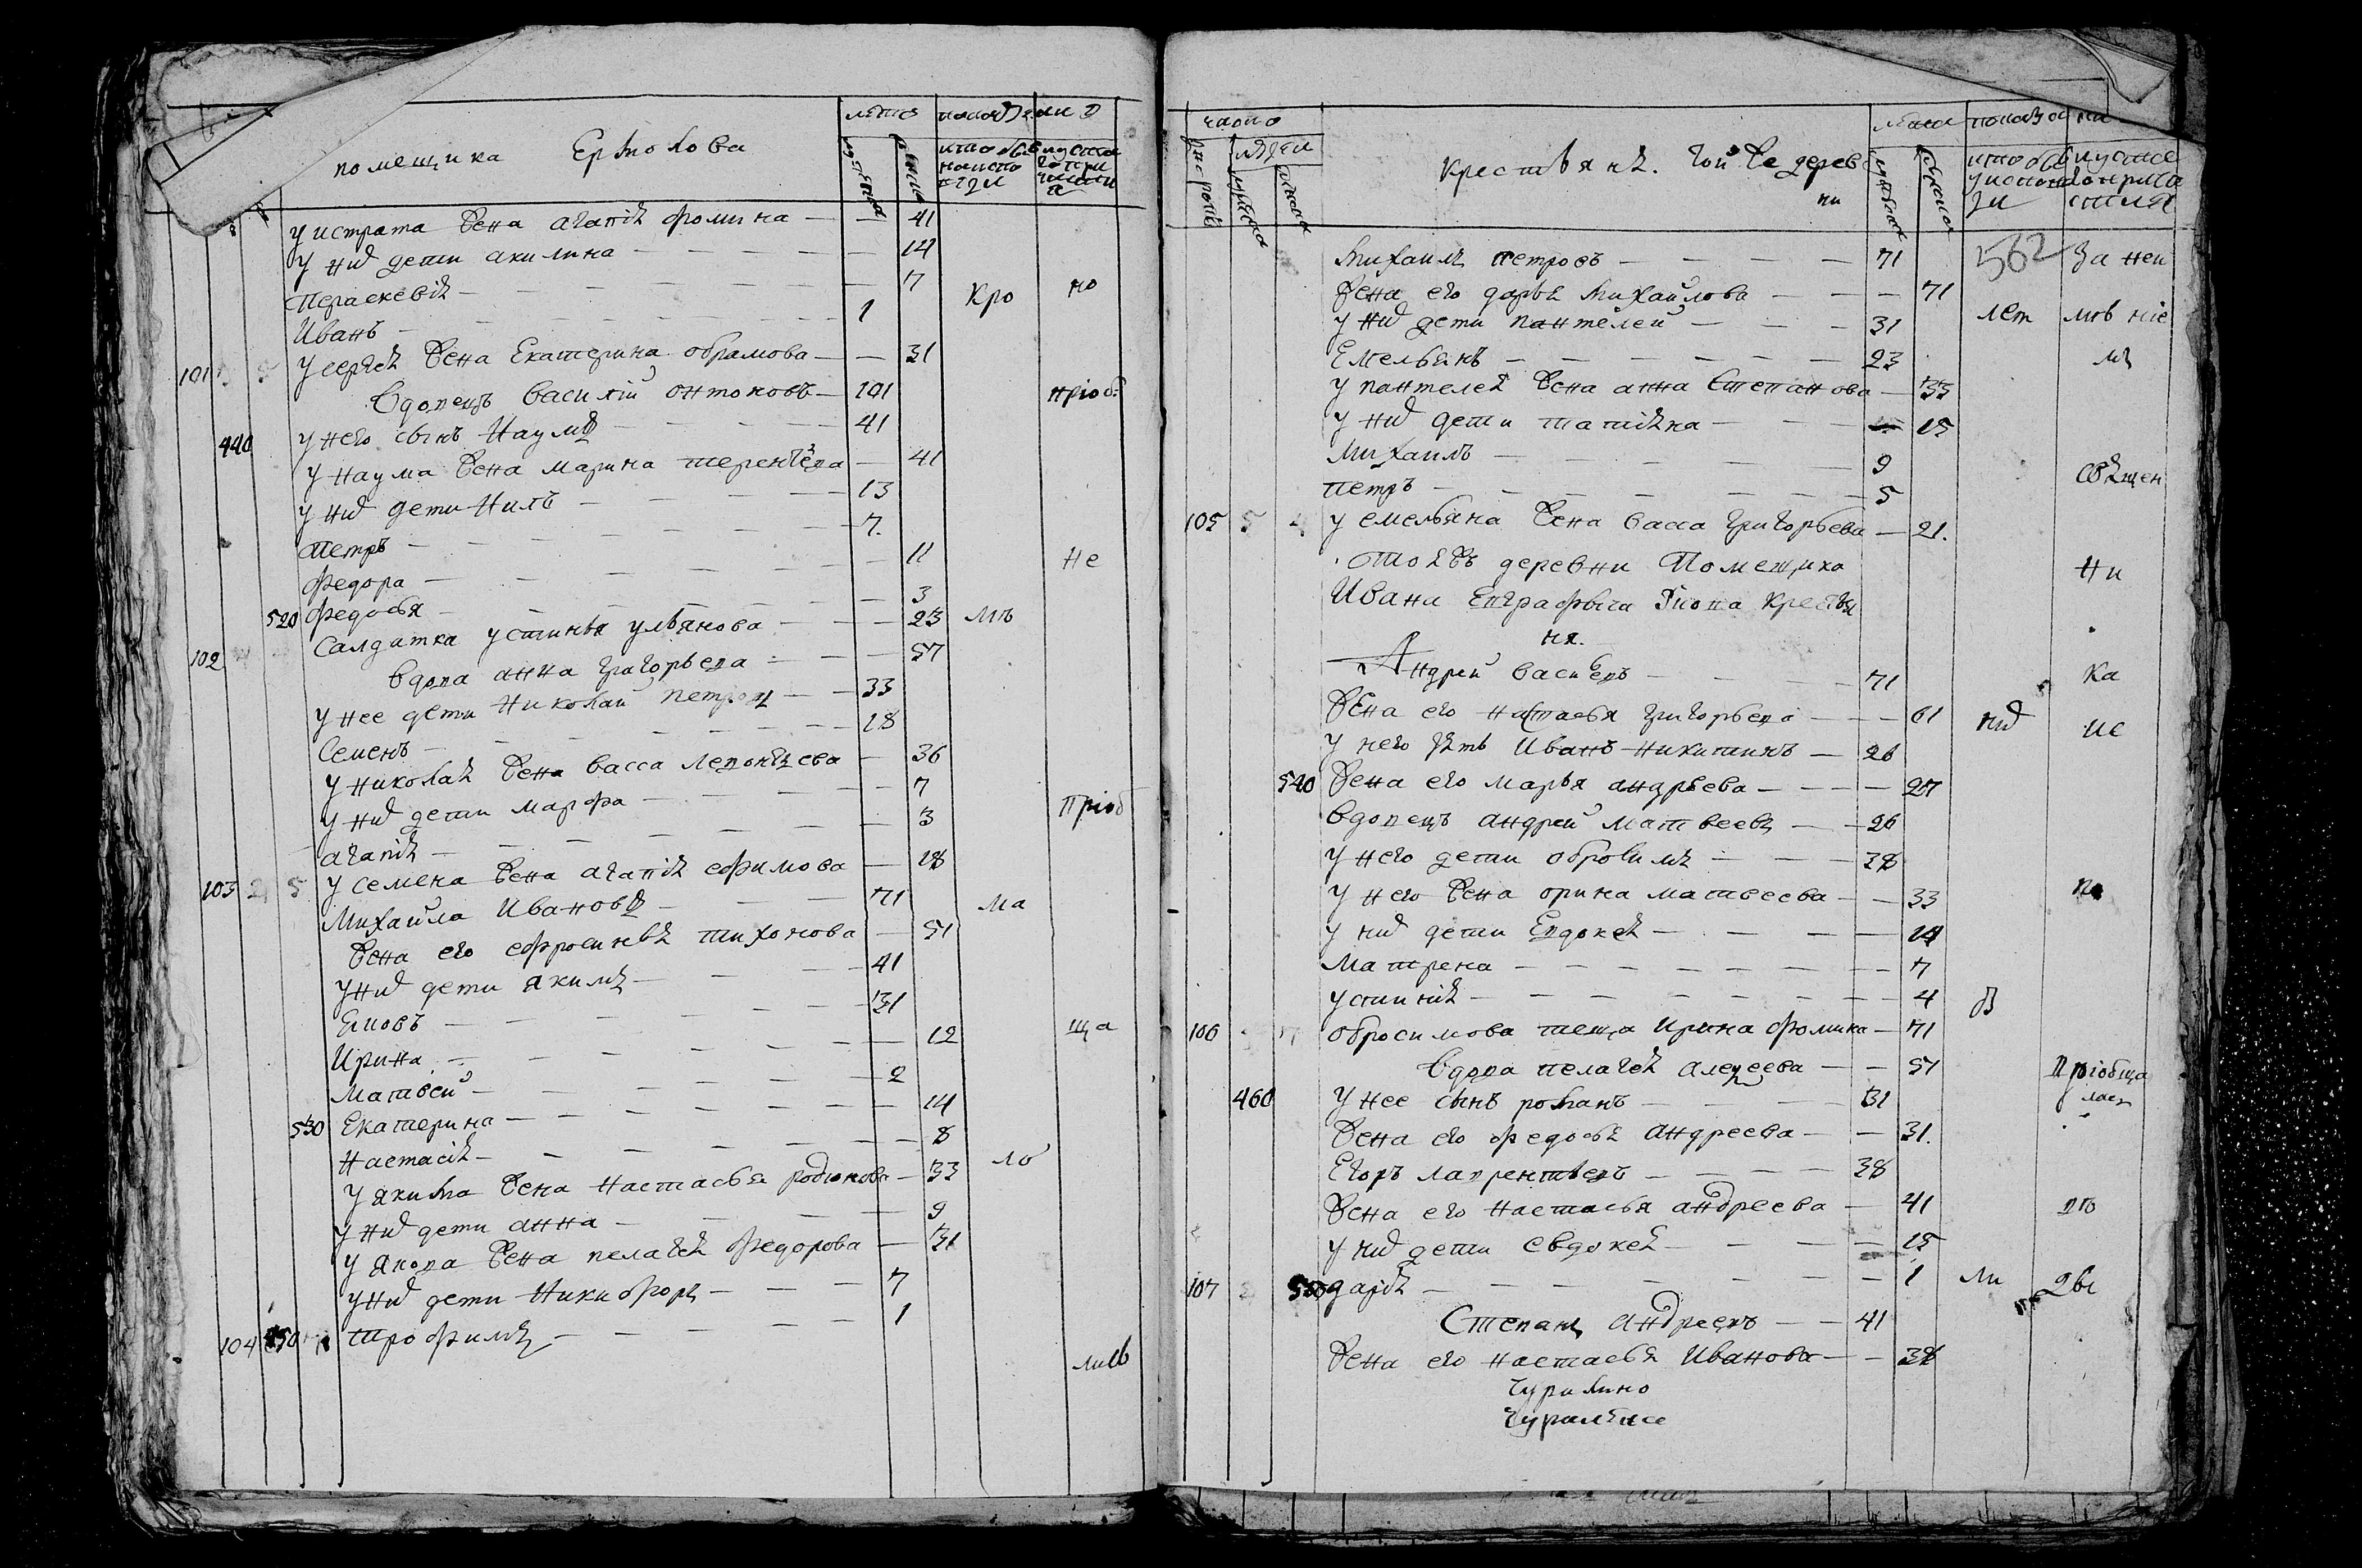 помещика Ермолова
лета
показание
у истрата жена агапия фомина — 41
у них дети акилина — 14
Параскевия — 7
Кро
но
Иванъ — 1
у сергея жена Екатерина обрамова — 31
101
вдовецъ василий онтоновъ — 101
пріоб
у него сынъ Наумъ — 41
440
у наума жена марина терентьева — 41
у них дети Нилъ — 13
петръ — 7
федора — 11
Не
520 федосья — 3
салдатка устинья ульянова — 23
мъ
102
вдова анна григорьева — 57
у нее дети Николай петровъ — 33
Семенъ — 18
у николая жена васса леонтьева — 36
у них дети марфа — 7
Пріоб
агапия — 3
у семена жена агапия ефимова — 18
103 5
Михайла Ивановъ — 71
ма
жена его ефросинья тихонова — 51
у них дети якимъ — 41
Яковъ — 31
Ирина — 12
ща
матвей — 2
530 Екатерина — 14
Настасия — 8
ло
у якима жена настасья родионова — 33
у них дети анна — 9
у якова жена пелагея федорова — 31
у них дети Никифоръ — 7
104 450 трофимъ — 1
лись
число
людей
крестьяне. той же дерев
ни
лета
показание
562
за неи
Михаилъ петровъ — 71
жена его дарья михайлова — 71
лет
мъ ніе
у них дети пантелей — 31
Емельянъ — 23
мъ
у пантелея жена анна степанова — 33
у них дети татияна — 15
Михаилъ — 9
священ
петръ — 5
105 5 4 у емельяна жена васса григорьева — 21.
той жъ деревни Помещика
ни
Ивана Евграфыча крестья
ня.
Андрей васильевъ — 71
ка
жена его настасья григорьева — 61
них
ис
у него зять Иванъ никитинъ — 26
540 жена его марья андреева — 27
вдовецъ андрей матвеевъ — 26
у него дети — 38
у него жена орина матвеева — 33
по
у них дети Евдокея — 14
матрена — 7
устиния — 4
106 обросимова теща Ирина фомина — 71
вдова пелагея — 57
пріобща
лас
460 у нее сынъ романъ — 31
жена его федосья андреева — 31.
Егоръ лаврентьевъ — 38
жена его настасья андреева — 41
у них дети евдокея — 15
107 дария — 1
ли
Степанъ андреевъ — 41
жена его настасья Иванова — 38
Чурилино